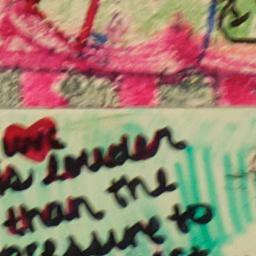 Love
is louder
than the
pressure to